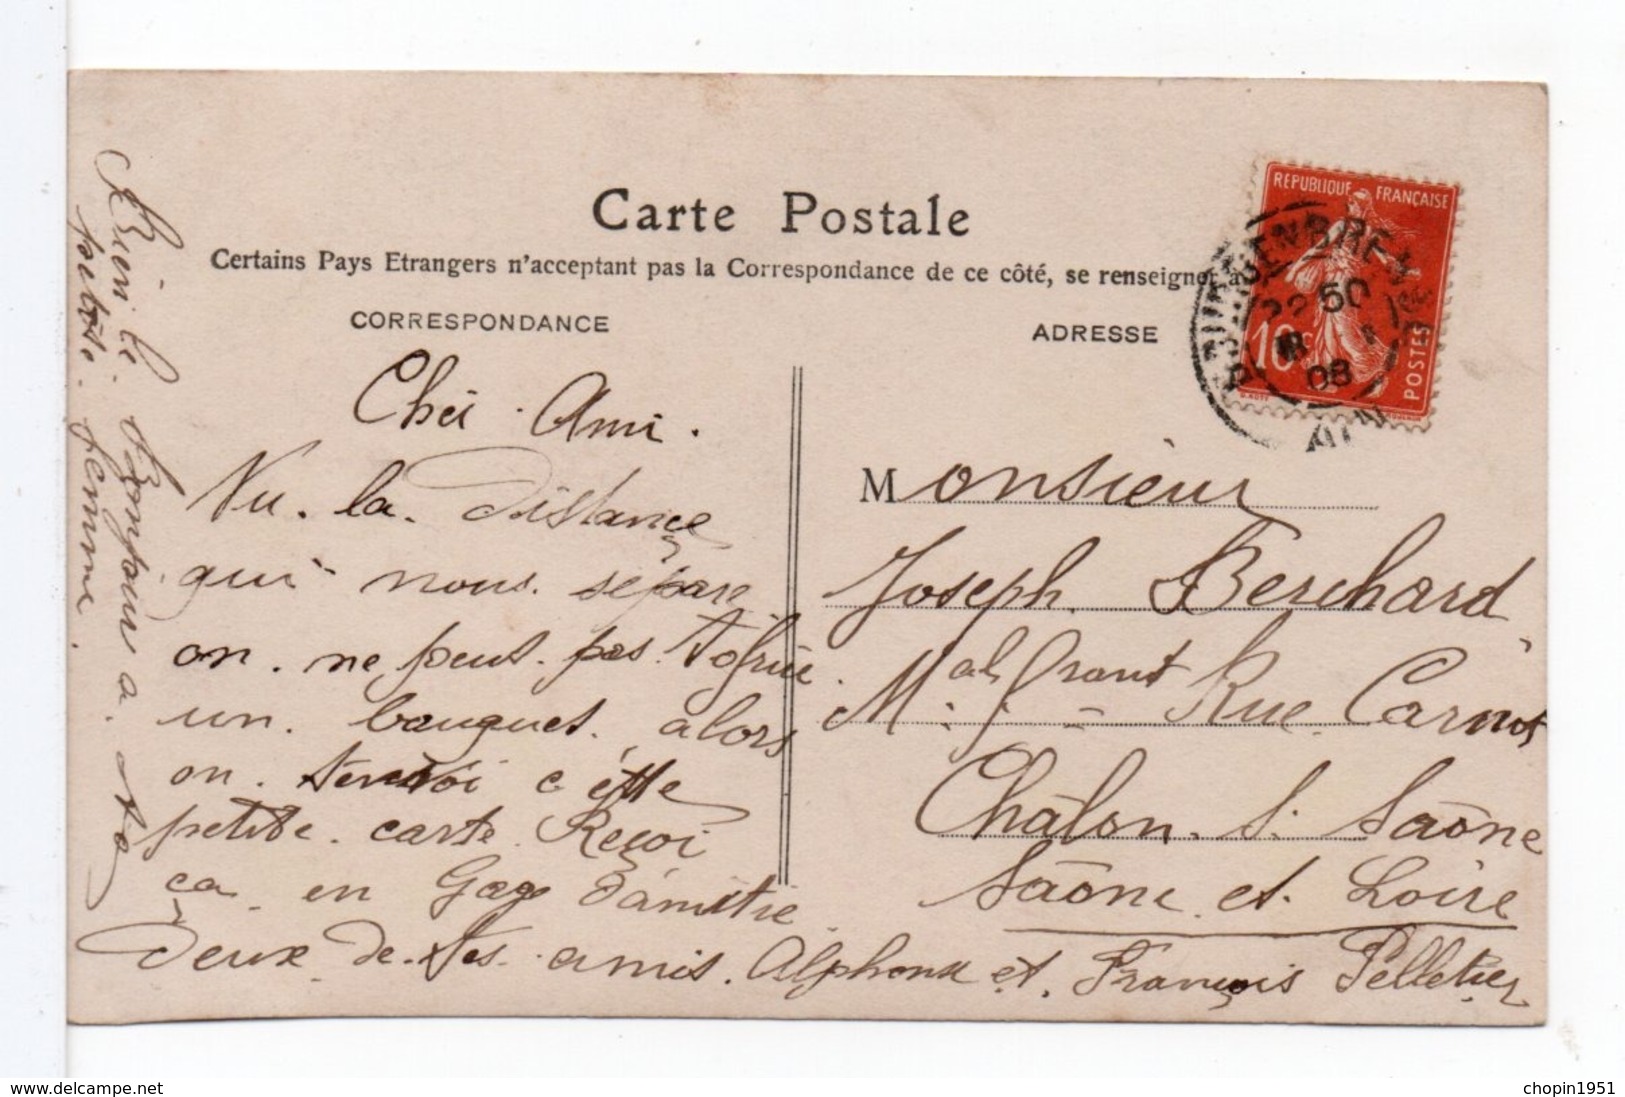 Carte Postale
Certains Pays Etrangers n'acceptant pas la Correspondance de ce côté, se renseigner à
CORRESPONDANCE
ADRESSE
REPUBLIQUE FRANÇAISE
10c
POSTES
08
Cher Ami.
Vu. la. distance
qui nous. sépare
on. ne peut. pas. t'ofrir.
un. bouquet. alors
on. t'envoi cette
petite. carte. Reçoi
ça. en Gage d'amitié.
Deux. de. tes. amis. Alphonse et. François Pelletier
Bien le. Bonjour a. ta
petite. femme.
Monsieur
Joseph. Berchard
Mal. f. Rue. Carnot
Châlon. S. Saône
Saône. et. Loire
www.delcampe.net
chopin1951